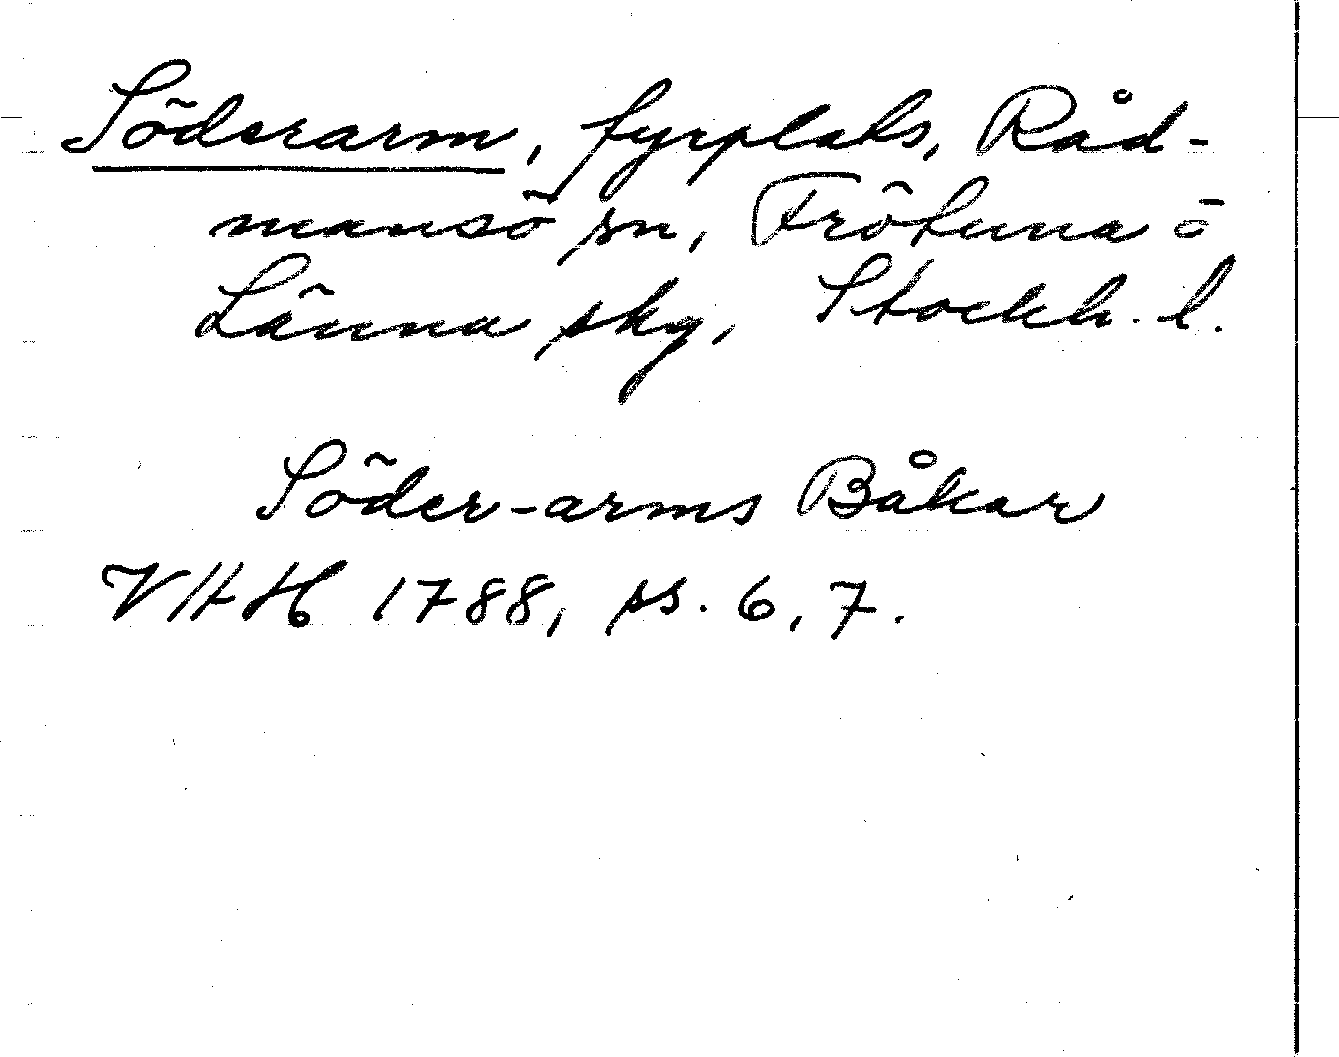 Söderarm, fyrplats, Råd-
mansö sn, Frötuna o
Länna skg, Stockh. l.
Söder-arms Båkar
VHH 1788, ss. 6, 7.